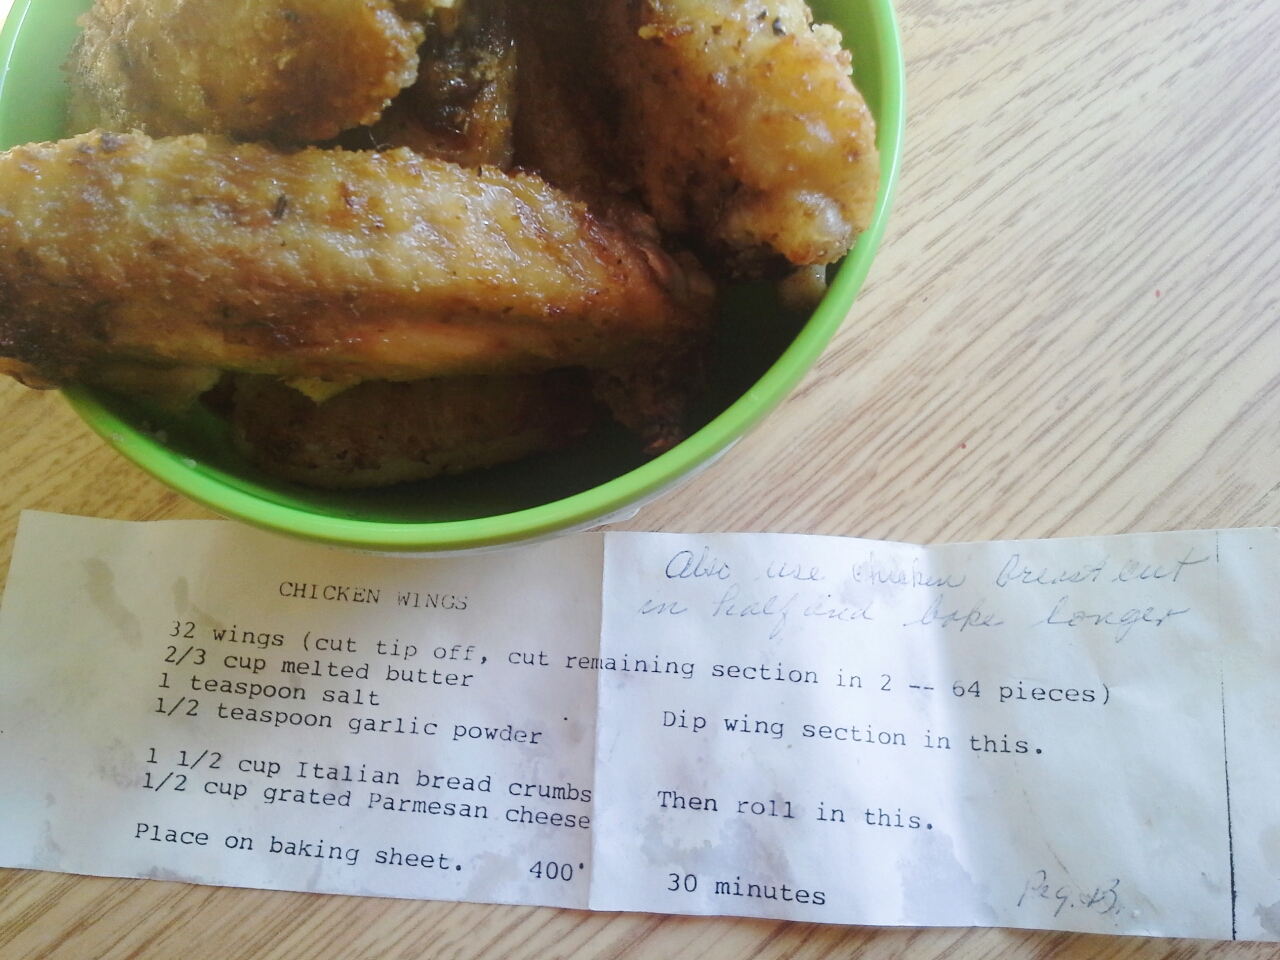 Also use chicken breast cut
in half and bake longer
CHICKEN WINGS
32 wings (cut tip off, cut remaining section in 2 -- 64 pieces)
2/3 cup melted butter
1 teaspoon salt
1/2 teaspoon garlic powder
Dip wing section in this.
1 1/2 cup Italian bread crumbs
1/2 cup grated Parmesan cheese
Then roll in this.
Place on baking sheet. 400° 30 minutes
Peg. B.